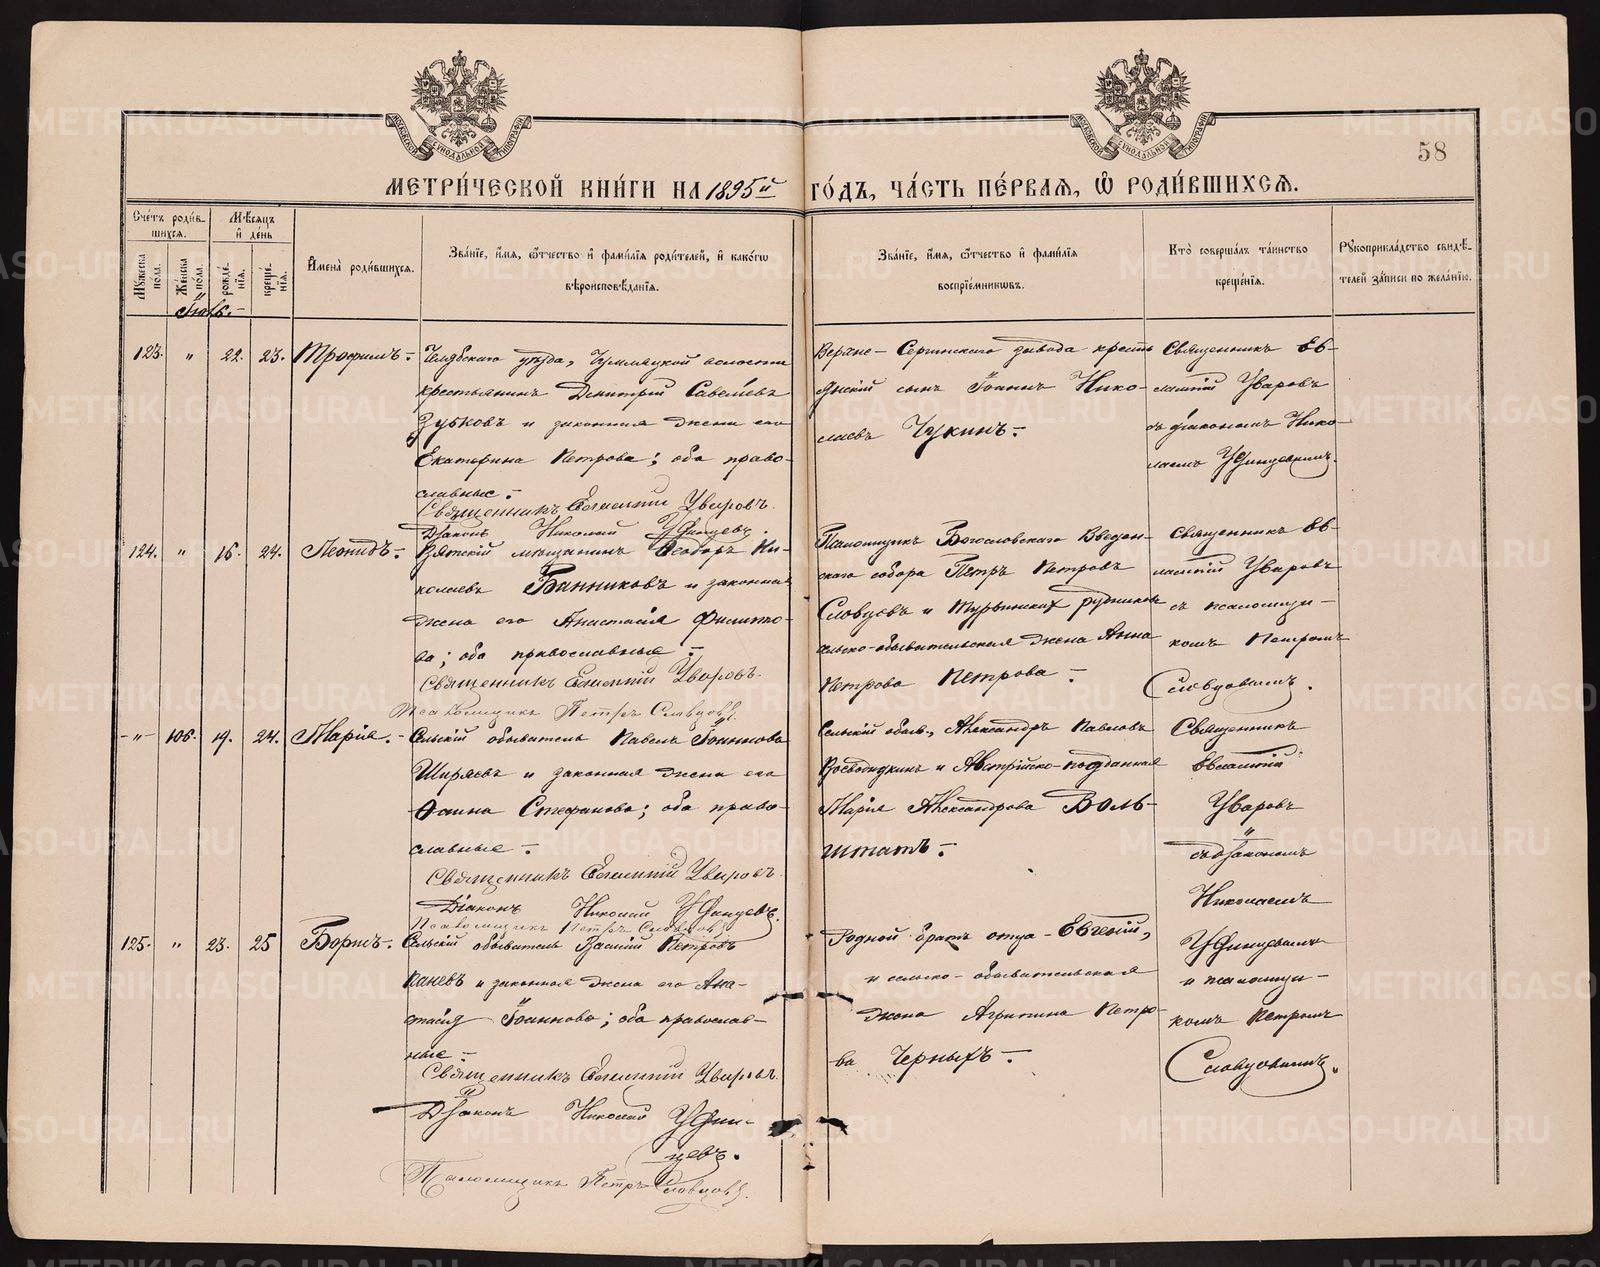 МЕТРИЧЕСКОЙ КНИГИ НА 1895й ГОДЪ, ЧАСТЬ ПЕРВАЯ, Ѡ РОДИВШИХСЯ.
58
Счетъ родив-
шихся.
Мѣсяцъ
и день
Мужеска
пола.
Женска
пола.
рожде-
нія.
креще-
нія.
Имена родившихся.
Званіе, имя, ѿчество и фамилія родителей, и какогѡ
вѣроисповѣданія.
Званіе, имя, ѿчество и фамилія
воспріемникѡвъ.
Кто совершалъ таинство
крещенія.
Рукоприкладство свидѣ-
телей записи по желанію.
123. " 22. 23. Трофимъ.
Челябскаго уѣзда, Чумляцкой волости
крестьянинъ Димитрій Савельевъ
Зубковъ и законная жена его
Екатерина Петрова; оба право-
славные.
Священникъ Евлампій Уваровъ.
Діаконъ Николай Удинцевъ.
Верхне-Сергинскаго завода кресть-
янскій сынъ Іоаннъ Нико-
лаевъ Чукинъ.
Священникъ Ев-
лампій Уваровъ
съ діакономъ Нико-
лаемъ Удинцевымъ.
124. " 16. 24. Леонидъ.
Вятскій мѣщанинъ Ѳеодоръ Ни-
колаевъ Банниковъ и законная
жена его Анастасія Филиппо-
ва; оба православные.
Священникъ Евлампій Уваровъ.
Псаломщикъ Петръ Словцовъ.
Псаломщикъ Богословскаго Введен-
скаго собора Петръ Петровъ
Словцовъ и Турьинскихъ рудниковъ
сельско-обывательская жена Анна
Петрова Петрова.
Священникъ Ев-
лампій Уваровъ
съ псаломщи-
комъ Петромъ
Словцовымъ.
" 106. 19. 24. Марія.
Сельскій обыватель Павелъ Іоанновъ
Ширяевъ и законная жена его
Фаина Стефанова; оба право-
славные.
Священникъ Евлампій Уваровъ.
Діаконъ Николай Удинцевъ.
Псаломщикъ Петръ Словцовъ
Сельскій обыв., Александръ Павловъ
и Австрійско-подданная
Марія Александрова Воль-
штатъ.
Священникъ
Евлампій
Уваровъ
съ діакономъ
Николаемъ
Удинцевымъ
и псаломщи-
комъ Петромъ
Словцовымъ.
125. " 23. 25 Борисъ.
Сельскій обыватель Василій Петровъ
Каневъ и законная жена его Ана-
стасія Іоаннова; оба православ-
ные.
Священникъ Евлампій Уваровъ.
Діаконъ Николай Удин-
цевъ.
Псаломщикъ Петръ Словцовъ.
Родной братъ отца - Евгеній,
и сельско-обывательская
жена Агрипина Петро-
ва Черныхъ.
METRIKI.GASO-URAL.RU